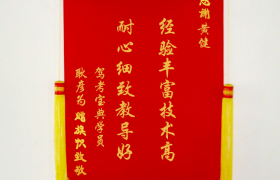 感谢黄健
经验丰富技术高
耐心细致教导好
驾考宝典学员
耿彦芍 赠旗祝致敬